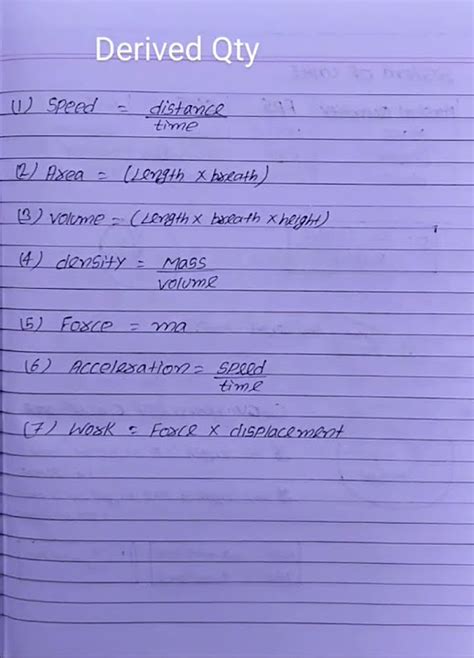 Derived Qty
(1) Speed = distance
time
(2) Area = (Length x breath)
(3) volume = (Length x breath x height)
(4) density = Mass
volume
(5) Force = ma
(6) Acceleration = speed
time
(7) Work = Force x displacement